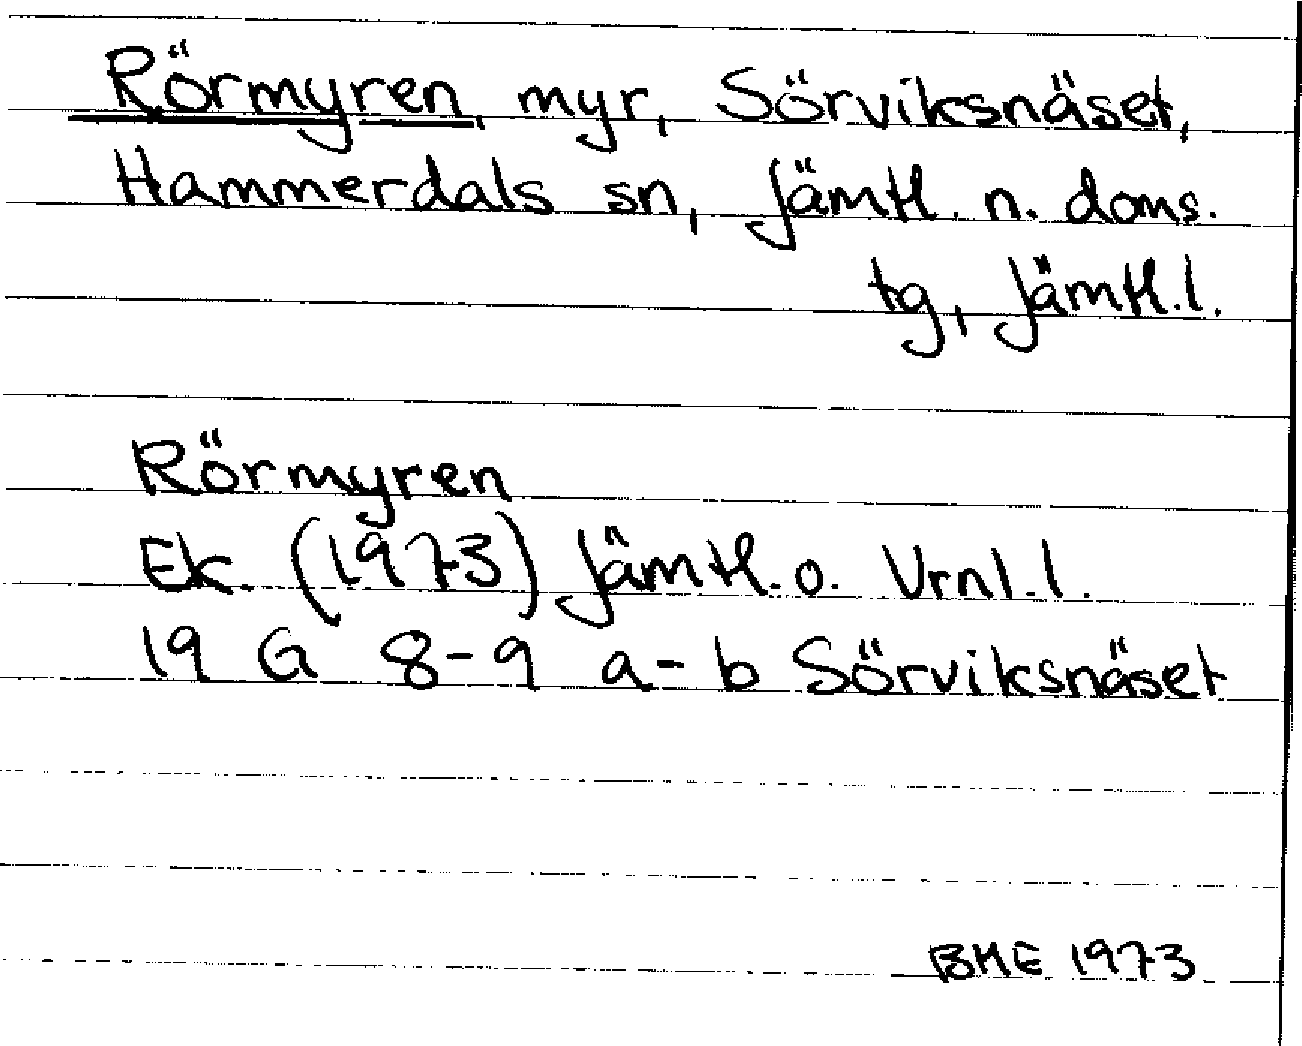 Rörmyren, myr, Sörviksnäset,
Hammerdals sn, Jämtl. n. doms.
tg, Jämtl. l.
Rörmyren
Ek. (1973) Jämtl. o. Vrnl. l.
19 G 8-9 a-b Sörviksnäset
BME 1973